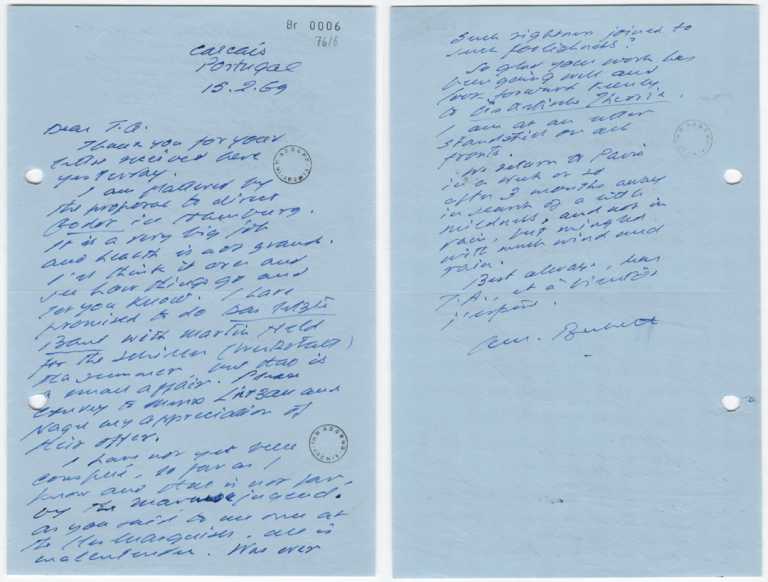 Br 0006
76/6
Cascais
Portugal
15.2.69
Dear T.A.
Thank you for your
letter received here
yesterday.
I am flattered by
the proposal to direct
Godot in Hamburg.
It is a very big job
and health is not grand.
I'll think it over and
see how things go and
let you know. I have
promised to do Das letzte
Band with Martin Held
for the Schiller (Werkstatt)
this summer, but that is
a small affair. Please
convey to Lietzau and
Nagel my appreciation of
their offer.
I have not yet been
conspué, so far as I
know and that is not far,
by the Marcusejugend.
As you said to me once at
the Iles Marquises, all is
malentendu. Was ever
such rightness joined to
such foolishness?
So glad your work has
been going well and
look forward keenly
to Aesthetische Theorie.
I am at an utter
standstill on all
fronts.
We return to Paris
in a week or so
after 3 months away
in search of a little
mildness, and not in
vain, but mingled
with much wind and
rain.
Best always, dear
T.A., et à bientôt
j'espère.
Sam. Beckett